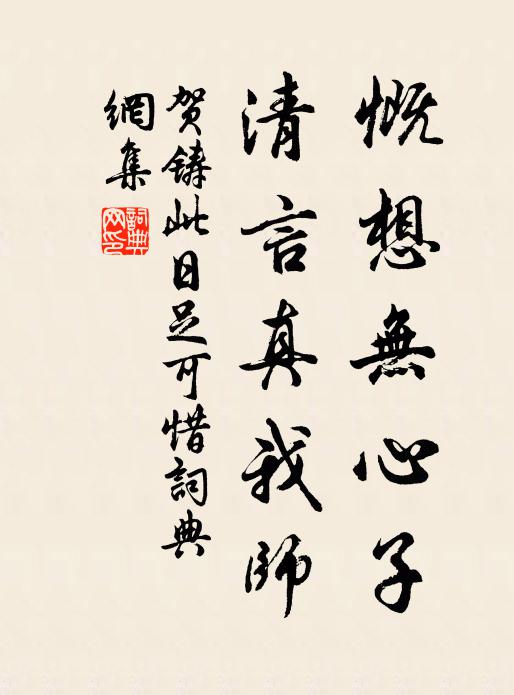 慨想無心子
清言真我師
贺鑄此日足可惜詞典
網集
詞典网印